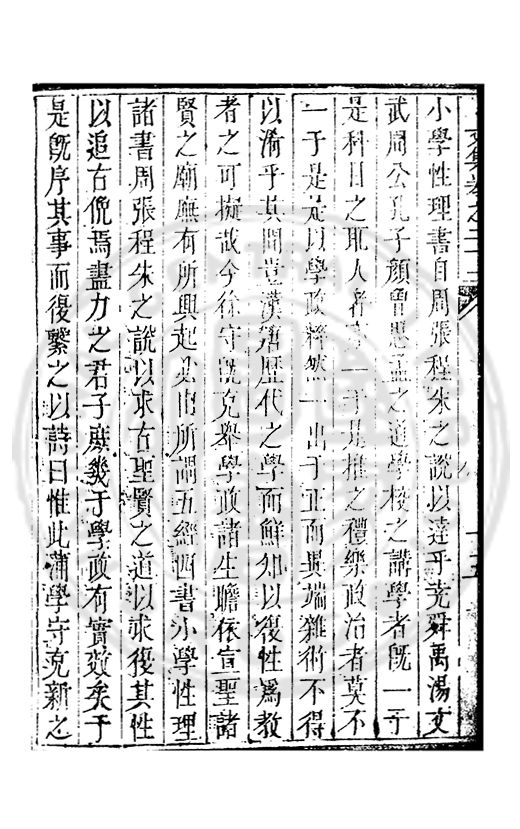 小學性理書自周張程朱之說以達乎堯舜禹湯文
武周公孔子顏曾思孟之道學校之講學者既一于
是科目之取人者亦一于是推之禮樂政治者莫不
一于是是以學政粹然一出于正而異端雜術不得
以淆乎其間豈漢唐歷代之學而鮮知以復性爲教
者之可擬哉今徐守既克舉學政諸生瞻依宣聖諸
賢之廟廡有所興起必由所謂五經四書小學性理
諸書周張程朱之說以求古聖賢之道以求復其性
以追古俛焉盡力之君子庶幾于學政有實效矣于
是既序其事而復繫之以詩曰惟此蒲學守克新之